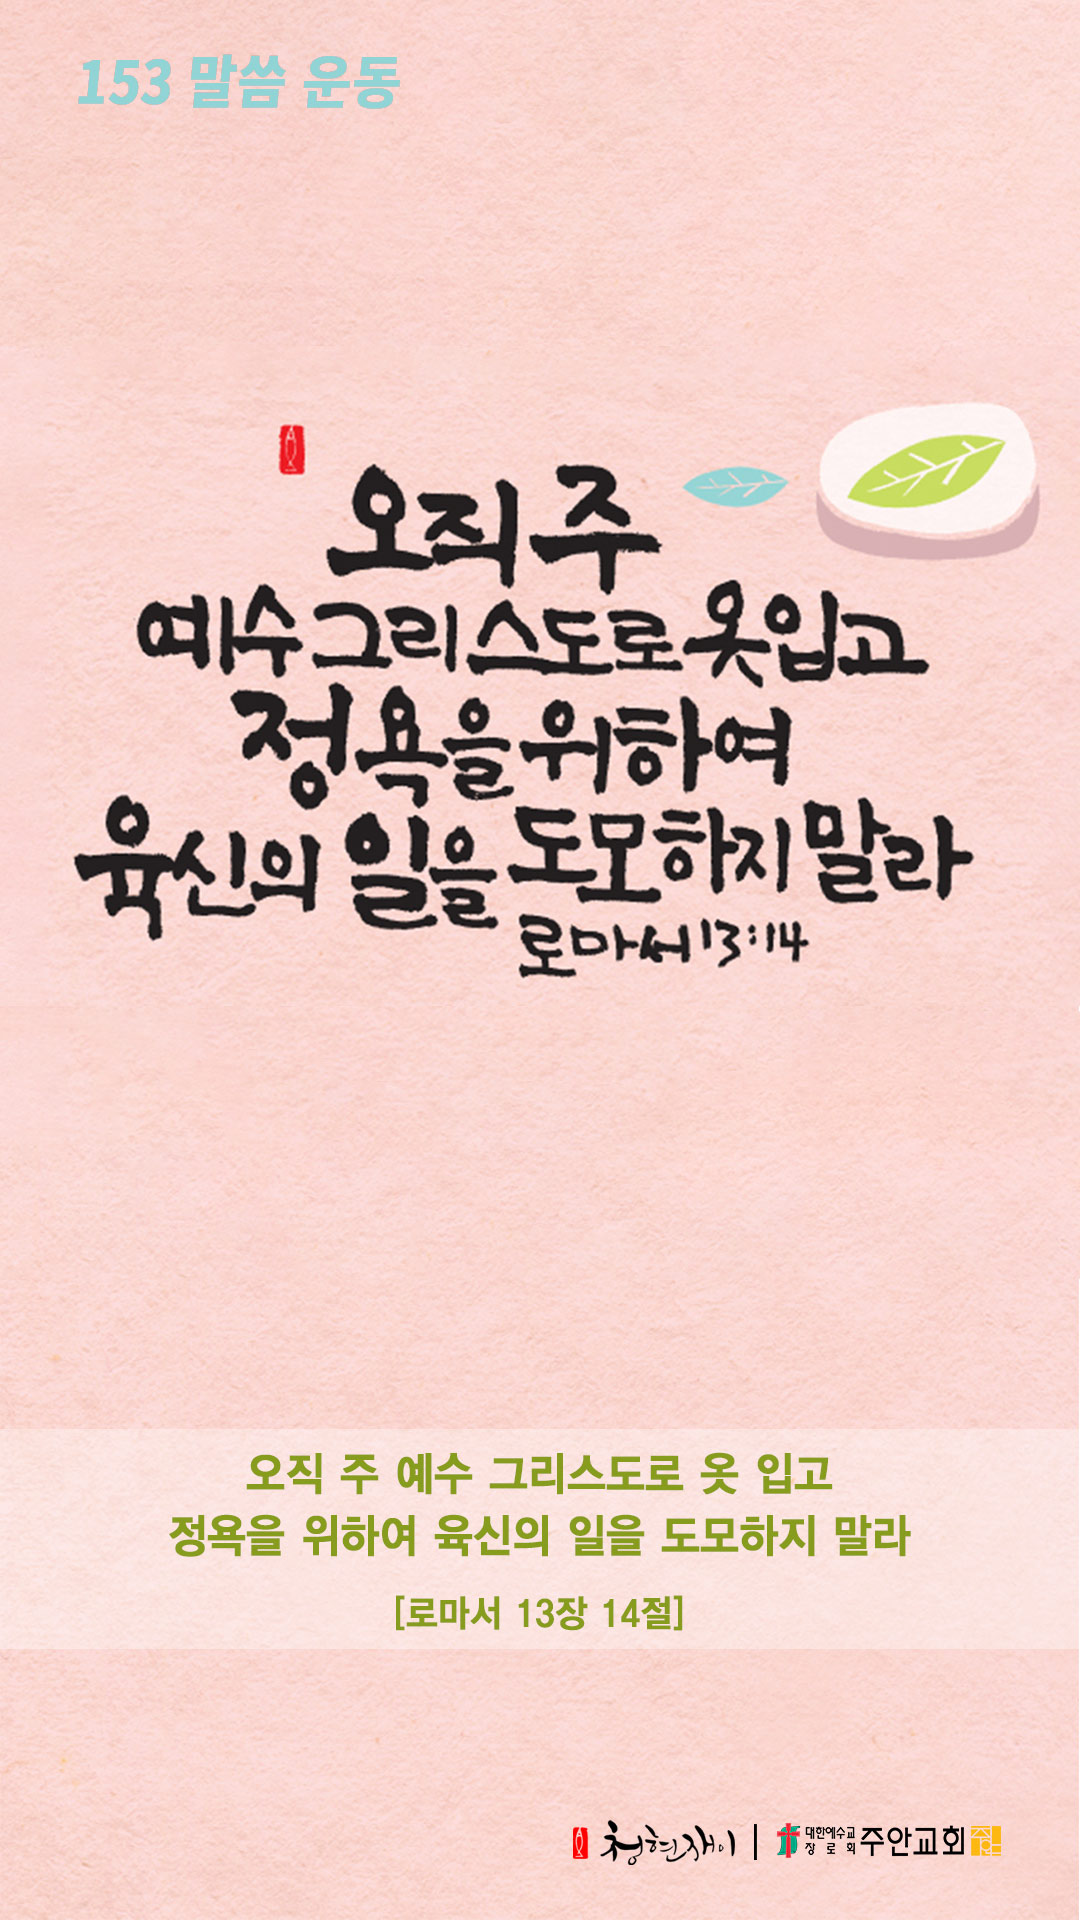 153 말씀 운동
오직 주
예수 그리스도로 옷 입고
정욕을 위하여
육신의 일을 도모하지 말라
로마서 13:14
오직 주 예수 그리스도로 옷 입고
정욕을 위하여 육신의 일을 도모하지 말라
[로마서 13장 14절]
청현재이 | 대한예수교 장로회 주안교회 주안